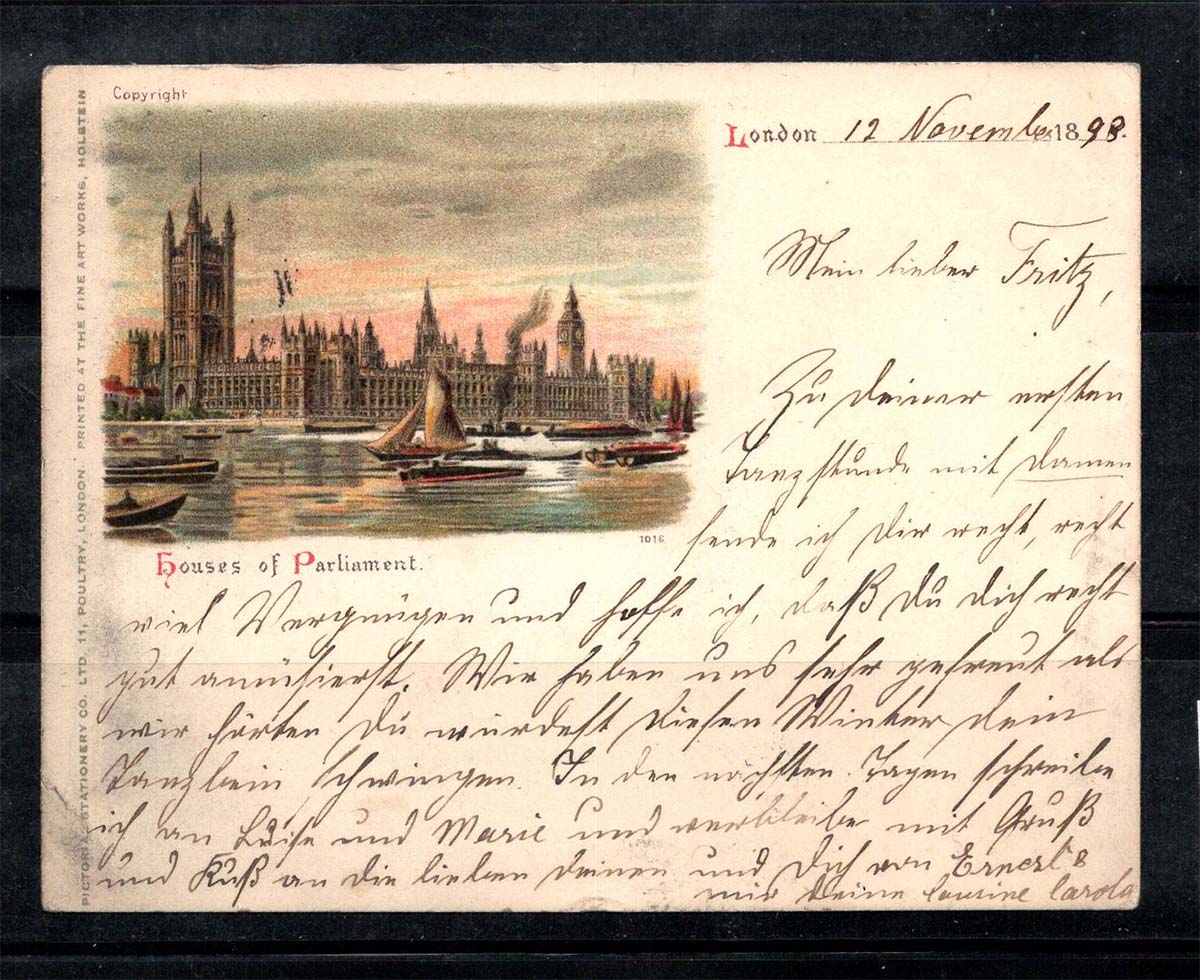 Copyright
London 12 November 1898.
Mein lieber Fritz,
Zu deiner ersten
Tanzstunde mit Damen
sende ich Dir recht, recht
1016
Houses of Parliament.
viel Vergnügen und hoffe ich, daß Du Dich recht
gut amüsierst. Wir haben uns sehr gefreut als
wir hörten Du würdest diesen Winter dein
Tanzbein schwingen. In den nächsten Tagen schreibe
ich an Luise und Marie und verbleibe mit Gruß
und Kuß an die lieben deinen und Dich von Ernest &
mir Deine Cousine Carola
PICTORIAL STATIONERY CO. LTD. 11, POULTRY, LONDON. PRINTED AT THE FINE ART WORKS, HOLSTEIN